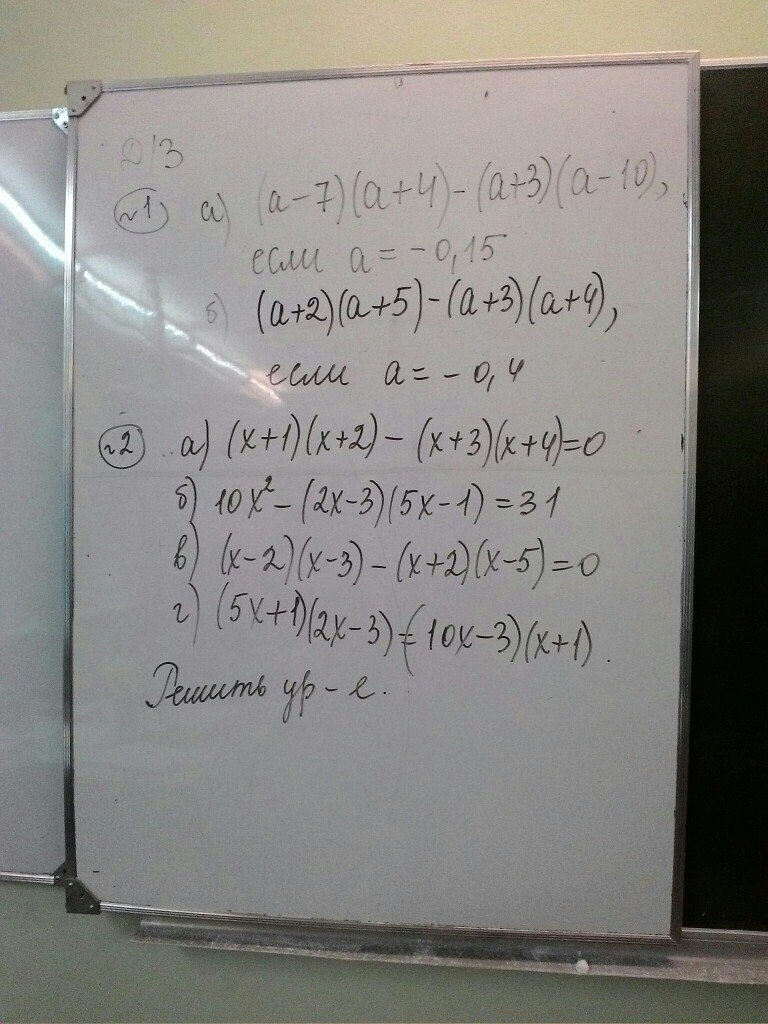 Д/З
№1 а) (a-7)(a+4)-(a+3)(a-10),
если a=-0,15
б) (a+2)(a+5)-(a+3)(a+4),
если a=-0,4
№2 а) (x+1)(x+2)-(x+3)(x+4)=0
б) 10x²-(2x-3)(5x-1)=31
в) (x-2)(x-3)-(x+2)(x-5)=0
г) (5x+1)(2x-3)=(10x-3)(x+1).
Решить ур-е.